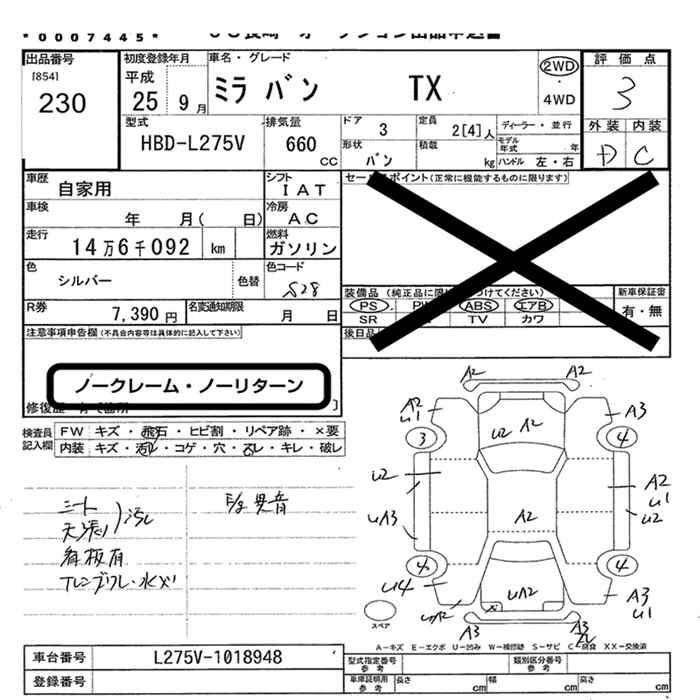 *0007445*
出品番号
[854]
230
初度登録年月
平成
25 9月
車名・グレード
ミラ バン TX
2WD
・
4WD
評価点
3
外装 内装
D C
型式
HBD-L275V
排気量
660
CC
ドア 3
形状 バン
定員 2[4]人
積載 kg
ディーラー・並行
モデル年式 年
ハンドル 左・右
車歴
自家用
シフト
IAT
車検
年 月( 日)
冷房
AC
走行
14万6千092 km
燃料
ガソリン
色
シルバー
色替
色コード
S28
R券
7,390円
名変通知期限
月 日
セールスポイント(正常に機能するものに限ります)
装備品
PS ABS エアB
SR TV カワ
新車保証書
有・無
後日品
注意事項申告欄(不具合内容等は具体的に記入して下さい)
ノークレーム・ノーリターン
検査員
記入欄
FW キズ・飛石・ヒビ割・リペア跡・×要
内装 キズ・汚レ・コゲ・穴・スレ・キレ・破レ
シート
天張り 汚レ
看板有
E/g 異音
A2 A2
A2 U1
A3
3
4
U2 A2
U2
A2 U1
U2
UA3
A2
4
4
U4
UA2
UA2
A3 U1
A3
A3
スペア
A-キズ E-エクボ U-凹み W-補修跡 S-サビ C-腐食 XX-交換済
車台番号
L275V-1018948
登録番号
型式指定番号
参考
類別区分番号
参考
車庫証明用
参考
長さ cm
幅 cm
高さ cm